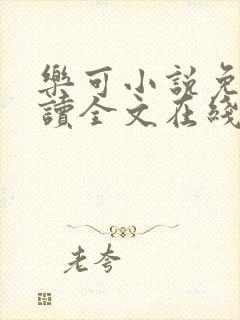 樂可小說免
讀全文在綫
老夸